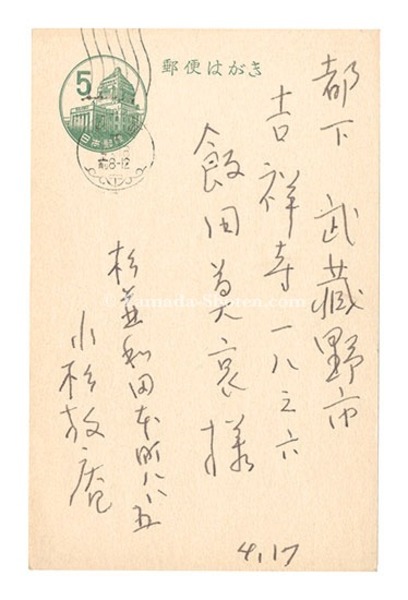 郵便はがき
5
日本郵便
前8-12
都下 武蔵野市
吉祥寺一八三六
飯田莫哀様
杉並和田本町八八五
小杉放庵
4.17
© Yamada-Shoten.com